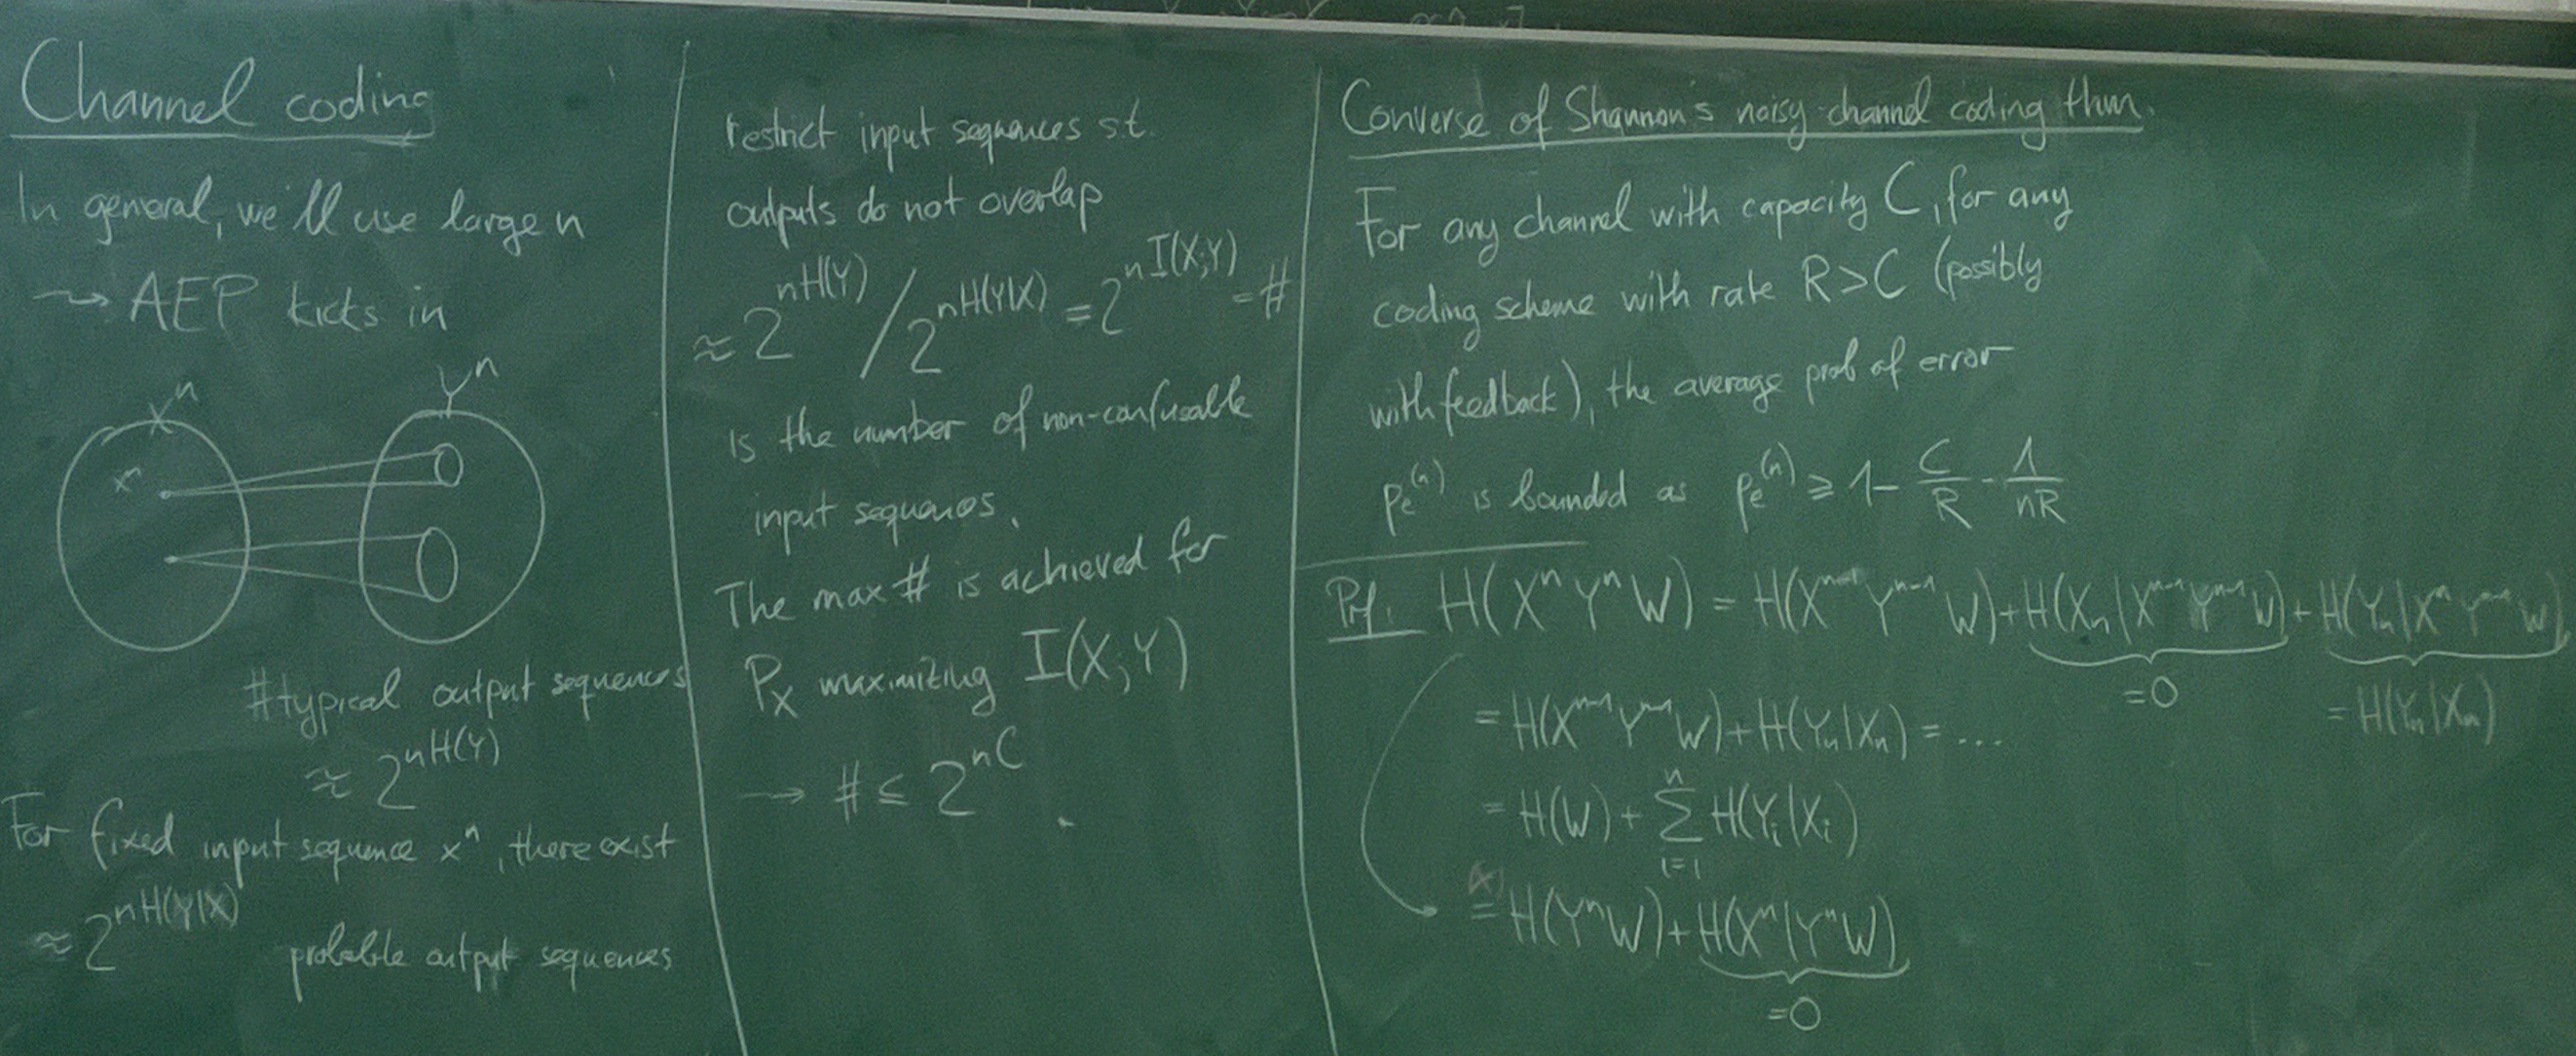 Channel coding
In general, we'll use large n
⇝ AEP kicks in
X^n
Y^n
x^n
#typical output sequences
≈ 2^{nH(Y)}
For fixed input sequence x^n, there exist
≈ 2^{nH(Y|X)} probable output sequences
restrict input sequences s.t.
outputs do not overlap
≈ 2^{nH(Y)} / 2^{nH(Y|X)} = 2^{nI(X;Y)} = #
is the number of non-confusable
input sequences.
The max # is achieved for
P_X maximizing I(X;Y)
→ # ≤ 2^{nC}
Converse of Shannon's noisy-channel coding thm.
For any channel with capacity C, for any
coding scheme with rate R>C (possibly
with feedback), the average prob of error
p_e^{(n)} is bounded as p_e^{(n)} ≥ 1 - C/R - 1/nR
Prf: H(X^n Y^n W) = H(X^{n-1} Y^{n-1} W) + H(X_n | X^{n-1} Y^{n-1} W) + H(Y_n | X^n Y^{n-1} W)
=0
= H(Y_n|X_n)
= H(X^{n-1} Y^{n-1} W) + H(Y_n|X_n) = ...
= H(W) + Σ_{i=1}^{n} H(Y_i|X_i)
= H(Y^n W) + H(X^n|Y^n W)
=0